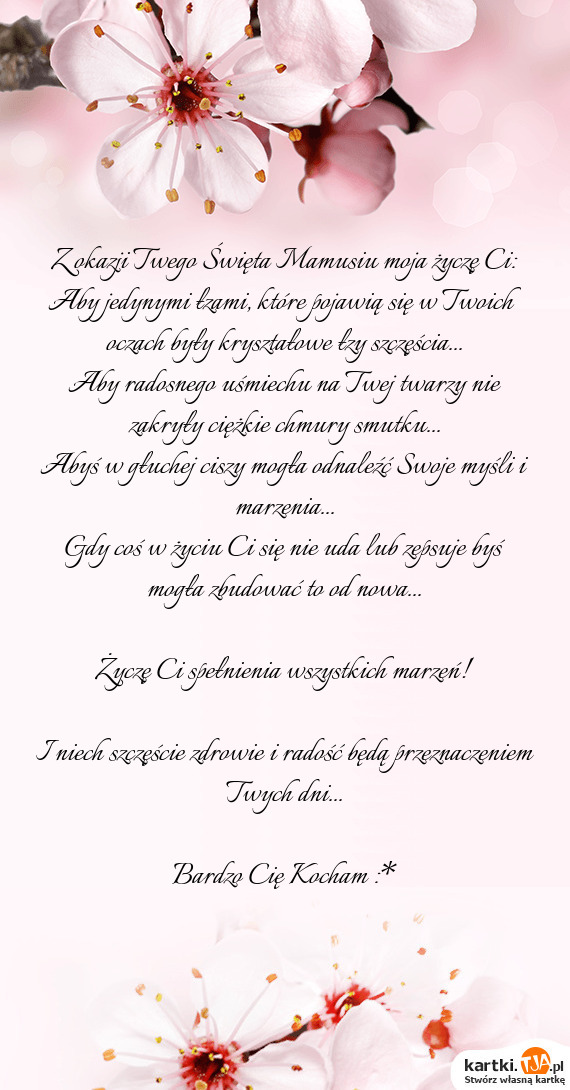 Z okazji Twego Święta Mamusiu moja życzę Ci:
Aby jedynymi łzami, które pojawią się w Twoich
oczach były kryształowe łzy szczęścia...
Aby radosnego uśmiechu na Twej twarzy nie
zakryły ciężkie chmury smutku...
Abyś w głuchej ciszy mogła odnaleźć Swoje myśli i
marzenia...
Gdy coś w życiu Ci się nie uda lub zepsuje byś
mogła zbudować to od nowa...
Życzę Ci spełnienia wszystkich marzeń!
I niech szczęście zdrowie i radość będą przeznaczeniem
Twych dni...
Bardzo Cię Kocham :*
kartki.TJA.pl
Stwórz własną kartkę